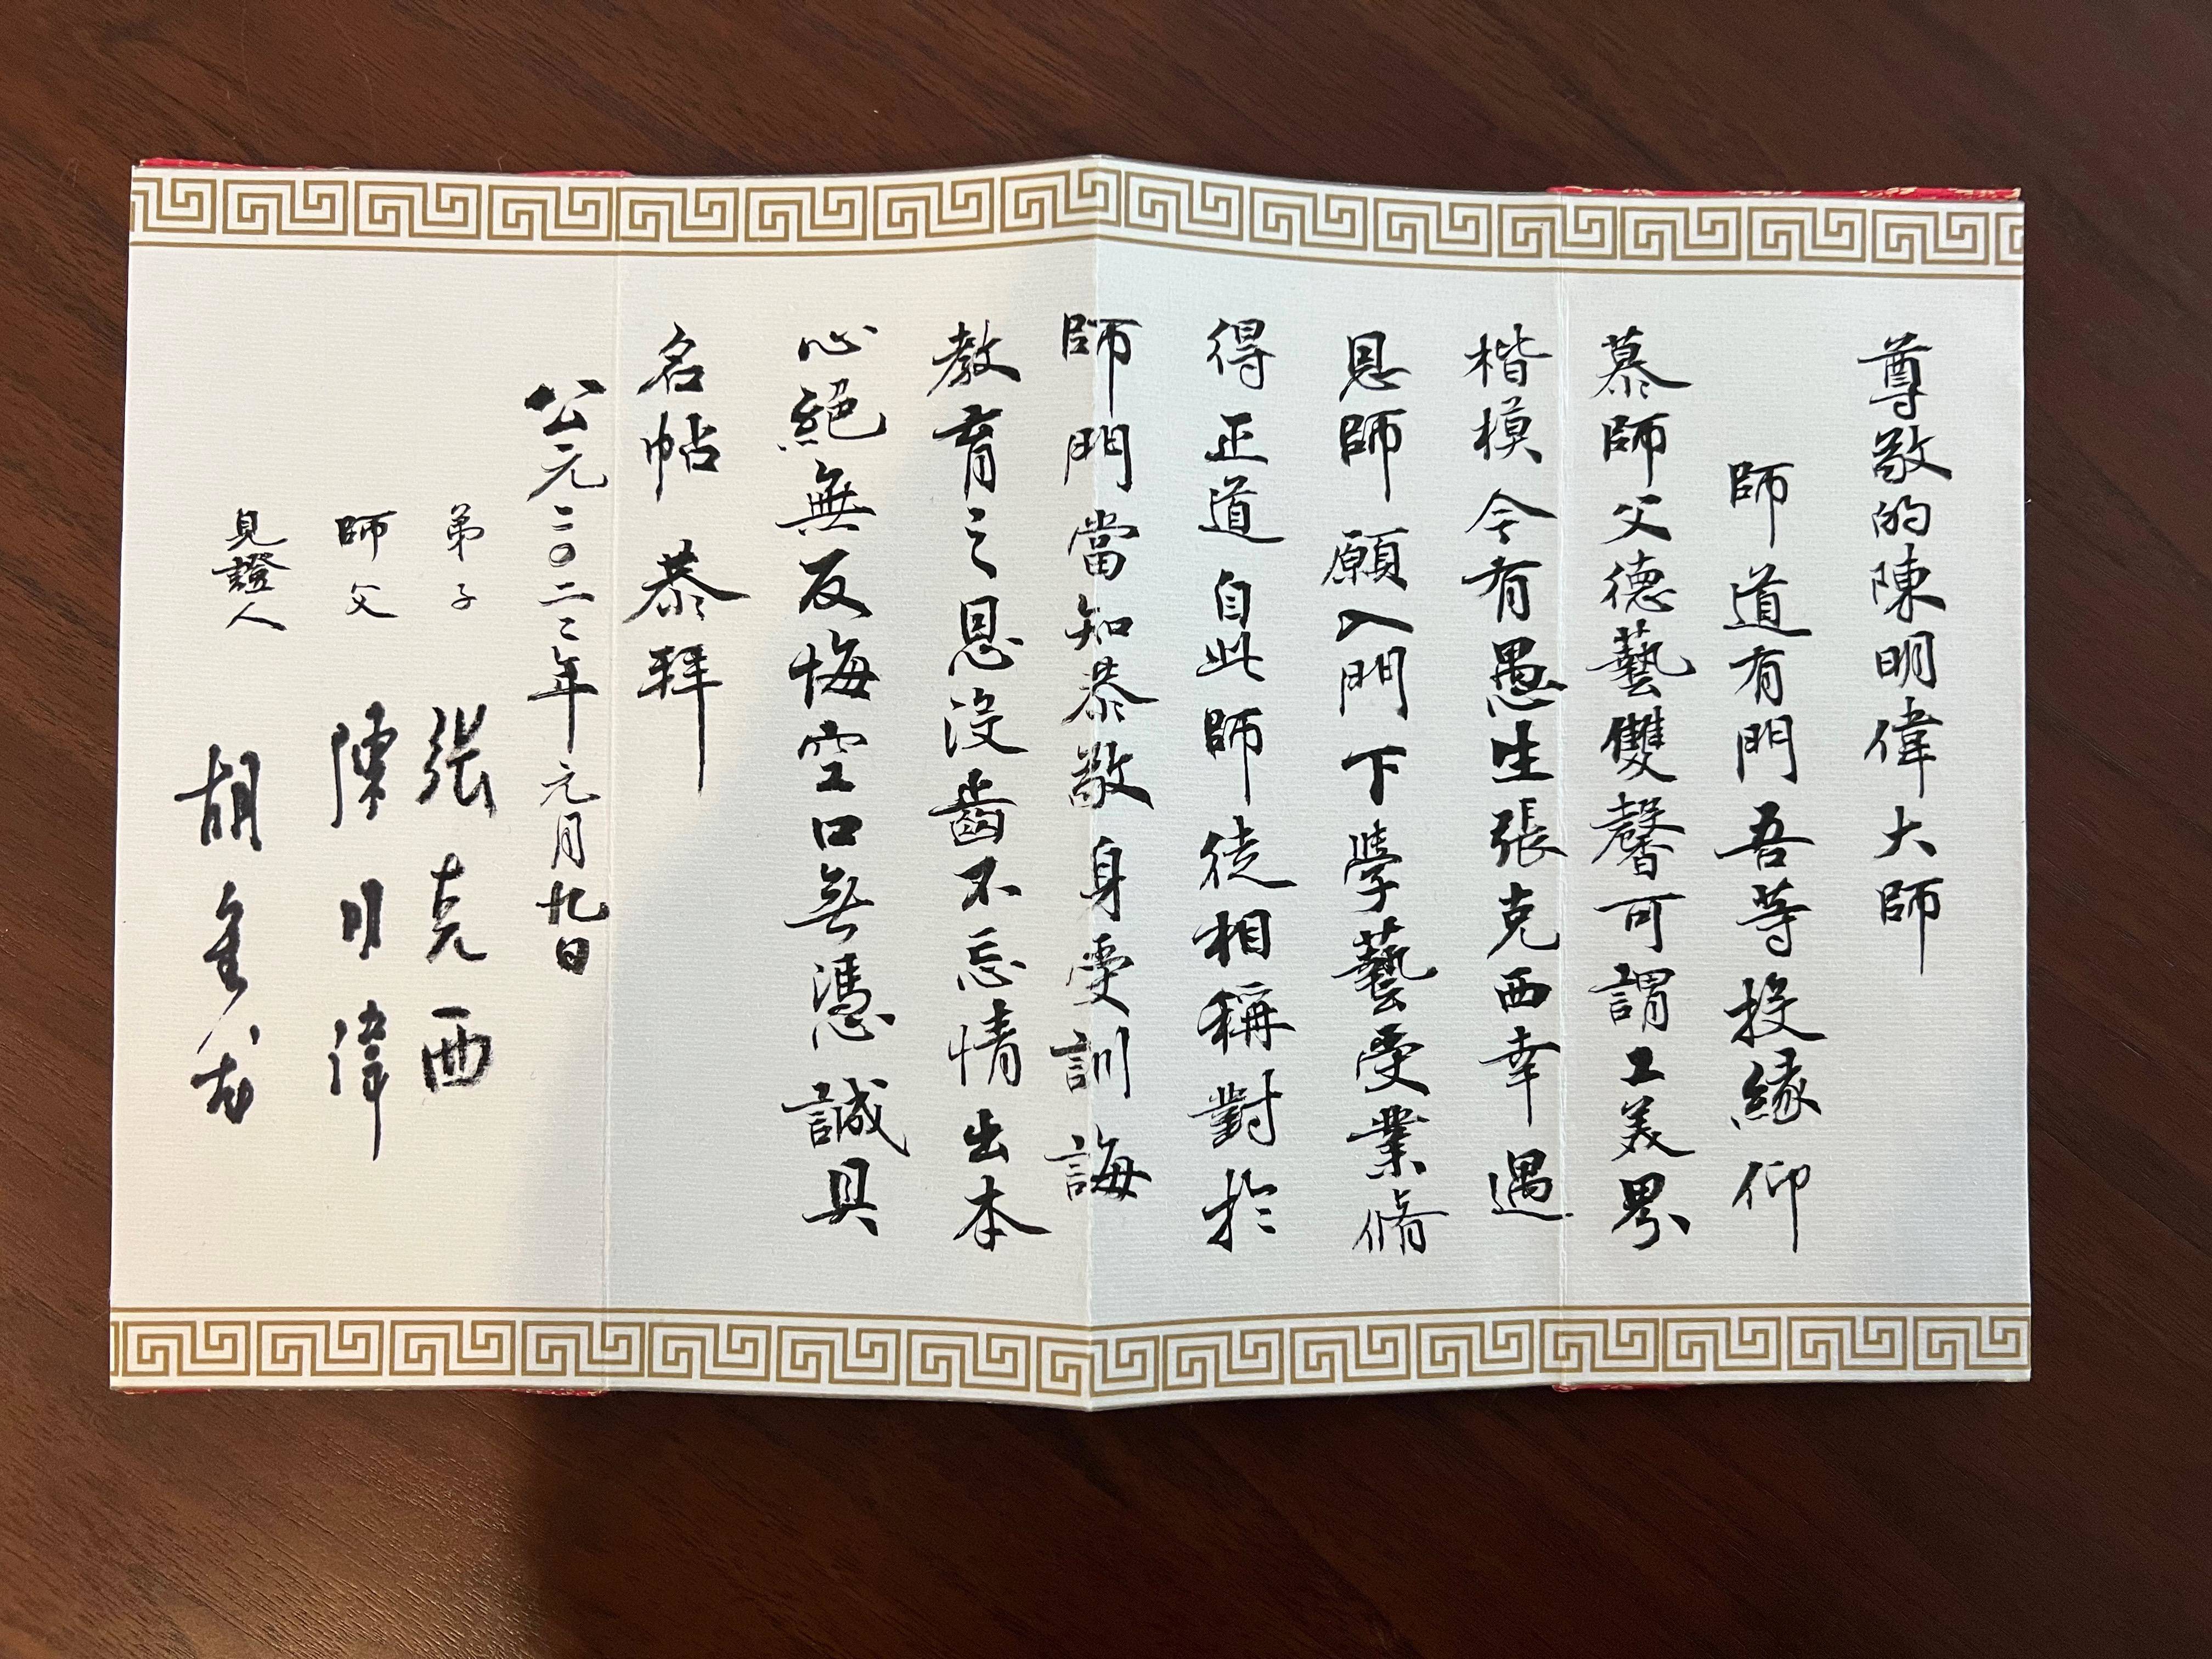 尊敬的陳明偉大師
師道有門吾等投緣仰
慕師父德藝雙馨可謂工美界
楷模今有愚生張克西幸遇
恩師願入門下學藝受業脩
得正道自此師徒相稱對於
師門當知恭敬身受訓誨
教育之恩沒齒不忘情出本
心絕無反悔空口無憑誠具
名帖恭拜
公元二〇二二年元月九日
弟子 張克西
師父 陳明偉
見證人 胡